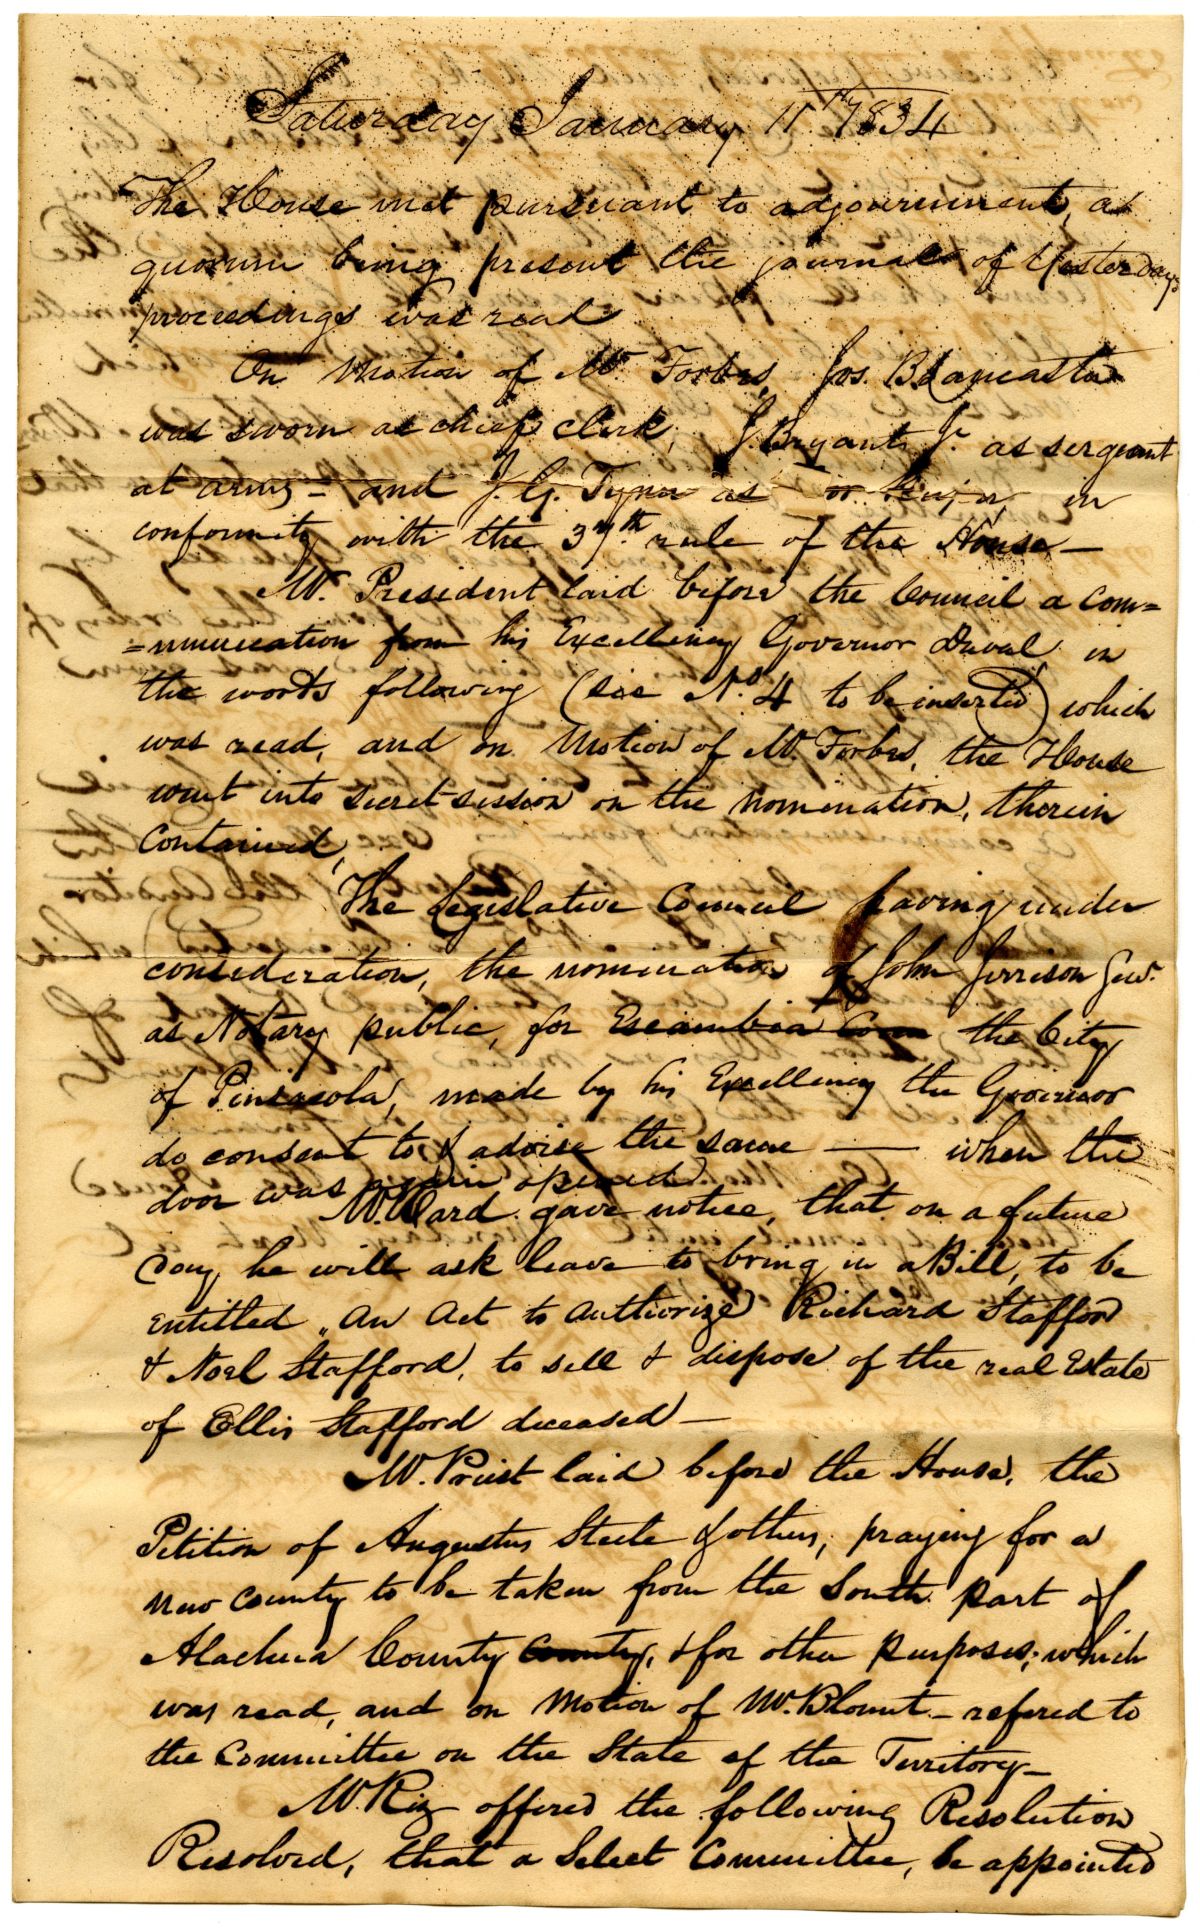 Saturday January 11th 1834
The House met pursuant to adjournment, a
quorum being present the journal of Yesterdays
proceedings was read
On Motion of Mr. Forbes, Jos. B Lancaster
was sworn as chief clerk, J. Bryant Jr. as sergeant
at arms - and J. G. Tyner as in
conformity with the 37th rule of the House -
Mr. President laid before the Council a com=
=munication from his Excellency Governor Duval in
the words following (see No. 4 to be inserted) which
was read, and on Motion of Mr. Forbes, the House
went into secret session on the nomination, therein
Contained,
The Legislative Council having under
consideration, the nomination of John Jerrison
as Notary public, for Escambia Coun the City
of Pensacola, made by his Excellency the Governor
do consent to & advise the same — when the
door was again opened.
Mr. Ward gave notice, that on a future
day he will ask leave to bring in a Bill, to be
entitled „An Act to authorize Richard Stafford
& Noel Stafford, to sell & dispose of the real Estate
of Ellis Stafford deceased —
Mr. Priest laid before the House, the
Petition of Augustus Steele & others, praying for a
new County to be taken from the South part of
Alachua County County, & for other purposes; which
was read, and on Motion of Mr. Blount - refered to
the Committee on the State of the Territory -
Mr. Riz offered the following Resolution
Resolved, that a Select Committee, be appointed